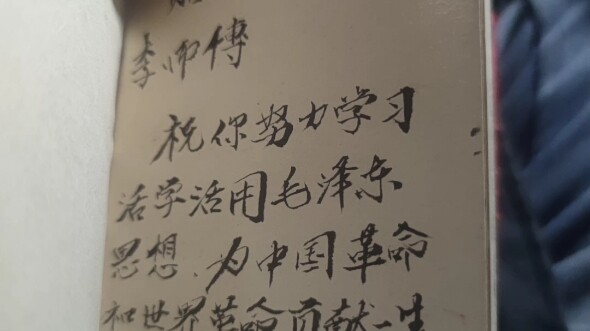 李师傅
祝你努力学习
活学活用毛泽东
思想、为中国革命
和世界革命贡献一生